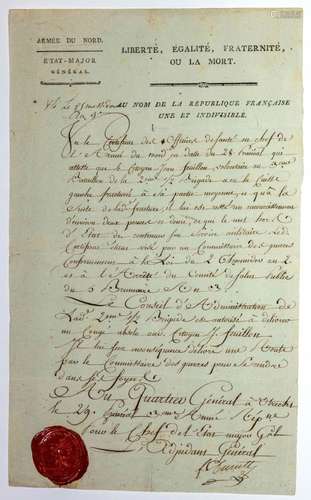 ARMÉE DU NORD.
ETAT-MAJOR
GÉNÉRAL.
LIBERTÉ, ÉGALITÉ, FRATERNITÉ,
OU LA MORT.
AU NOM DE LA RÉPUBLIQUE FRANÇAISE
UNE ET INDIVISIBLE.
Vu le Certificat des Officiers de Santé en chef de
l'Armée du nord en date du 28
atteste que le Citoyen Jean fouillon volontaire au
Bataillon de la Brigade a eu la Cuisse
gauche fracturée à sa partie moyenne, et qu'à la
Suite de la fracture il lui est resté un raccourcissement
d'environ deux pouces et demi, ce qui le met hors
d'Etat de continuer son Service militaire Led.
Certificat visé par un Commissaire des guerres
Conformément à la Loi du 2 Thermidor an 2
et à l'Arrêté du Comité de Salut Public
du 5 Brumaire An 3
Le Conseil d'Administration de
Lad. Brigade est autorisé à délivrer
un Congé absolu au Citoyen J. fouillon
Il lui sera en conséquence délivré une Route
par le Commissaire des guerres pour se rendre
dans ses foyers
Au Quartier Général à
le 29 Année
Pour le Chef de l'Etat major Gal
L'Adjudant Général